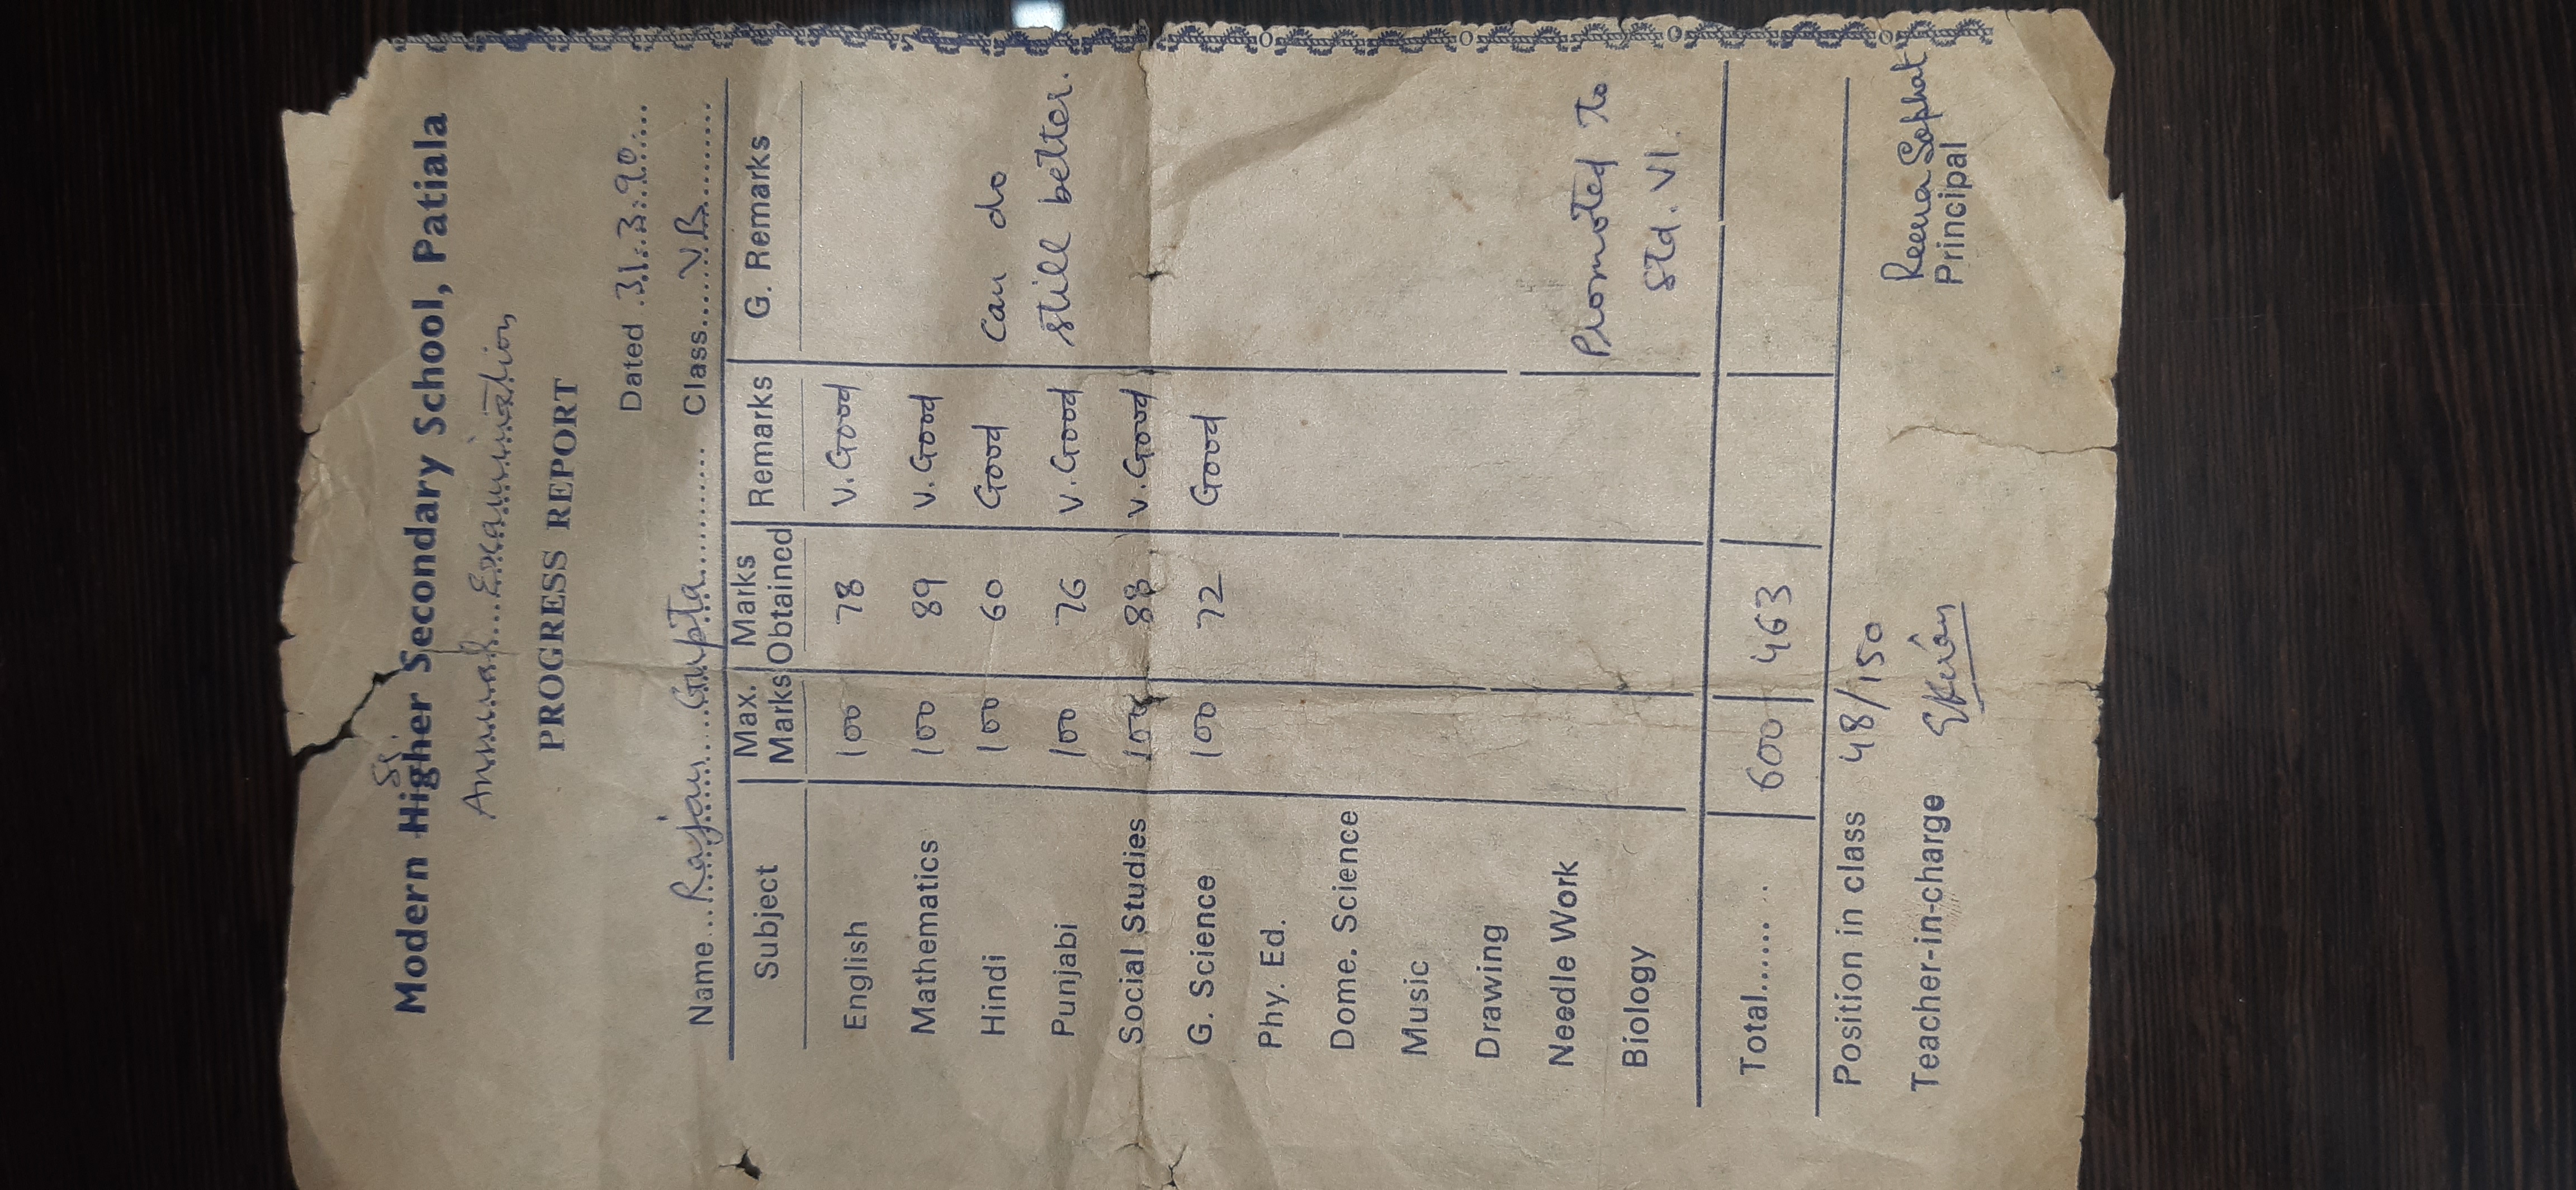 Modern Sr Higher Secondary School, Patiala
Annual Examination
PROGRESS REPORT
Dated 31.3.90
Name Rajan Gupta Class V.B
Subject Max. Marks Marks Obtained Remarks G. Remarks
English 100 78 V. Good
Mathematics 100 89 V. Good
Hindi 100 60 Good Can do
Punjabi 100 76 V. Good still better.
Social Studies 100 88 V. Good
G. Science 100 72 Good
Phy. Ed.
Dome. Science
Music
Drawing
Needle Work Promoted to
Biology Std. VI.
Total....... 600 463
Position in class 48/150
Teacher-in-charge Reena Sophat
Principal